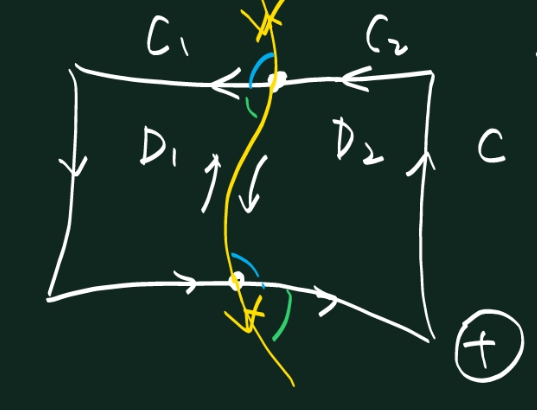 C₁ C₂
D₁ D₂ C
+